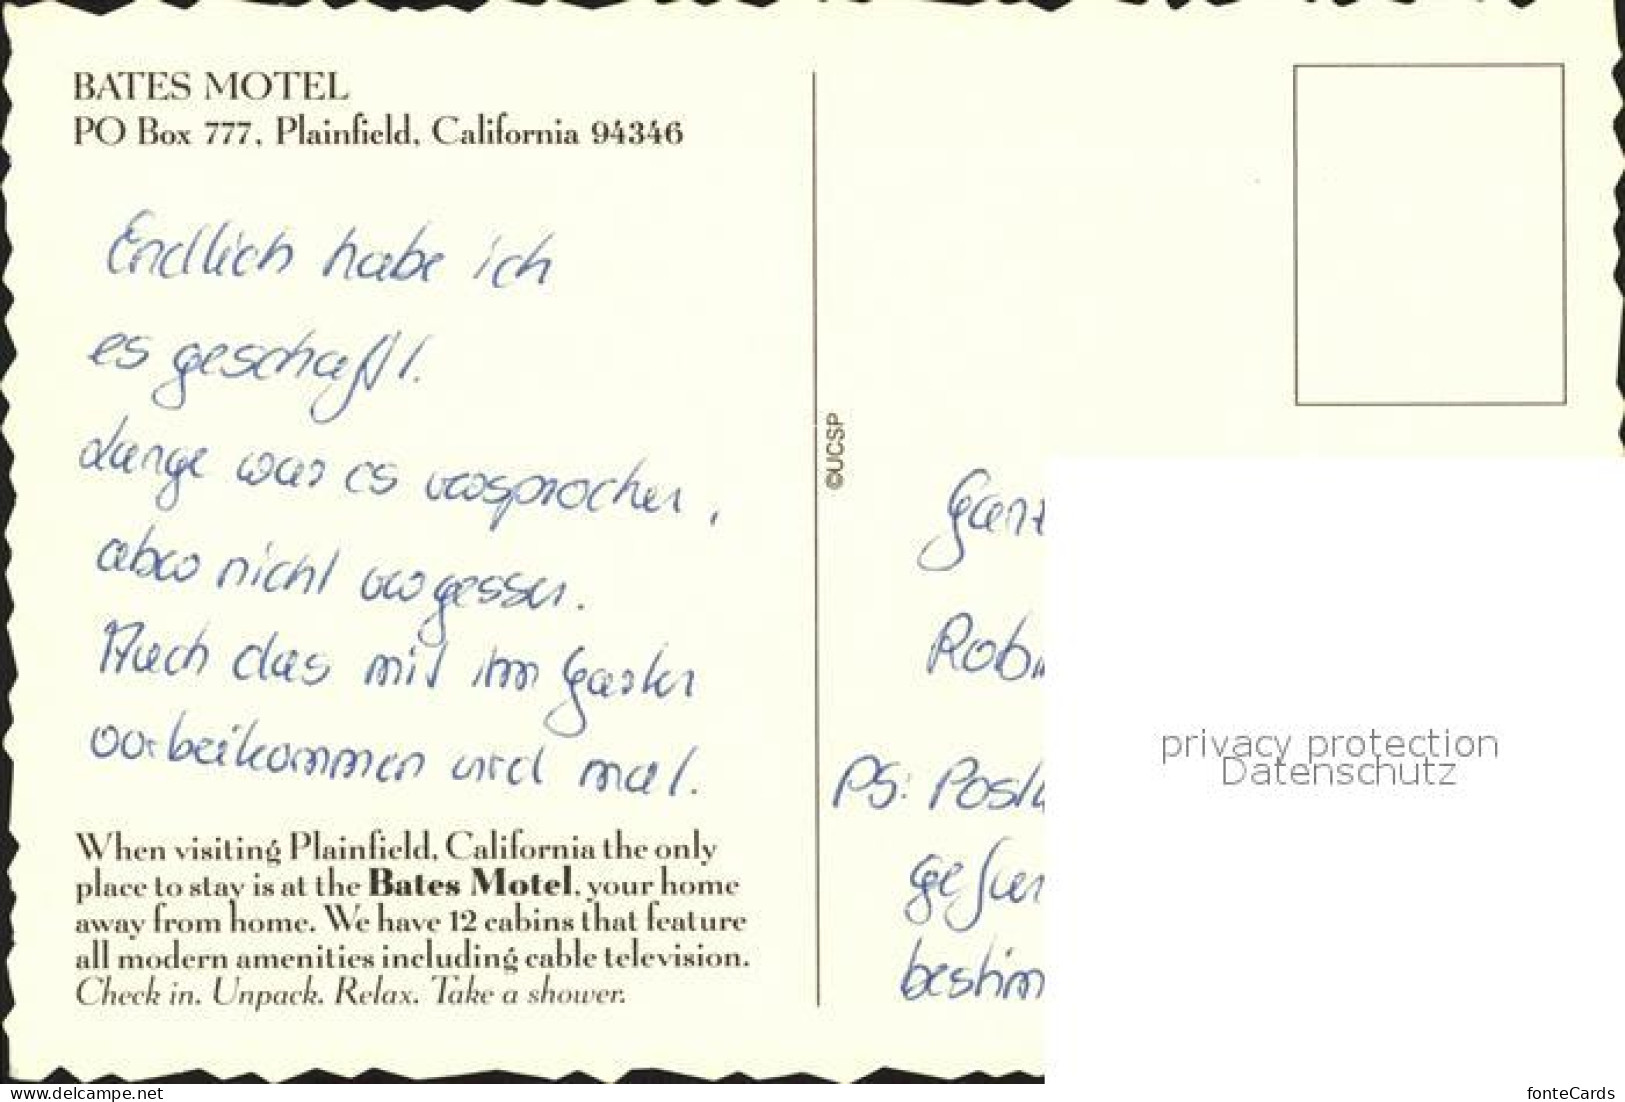 BATES MOTEL
PO Box 777, Plainfield, California 94346
Endlich habe ich
es geschafft.
Lange war es versprochen,
aber nicht vergessen.
Auch das mit im Garten
vorbeikommen wird mal.
When visiting Plainfield, California the only
place to stay is at the Bates Motel, your home
away from home. We have 12 cabins that feature
all modern amenities including cable television.
Check in. Unpack. Relax. Take a shower.
©UCSP
Ganz
Robi
PS: Post
gefun
bestim
privacy protection
Datenschutz
www.delcampe.net
fonteCards